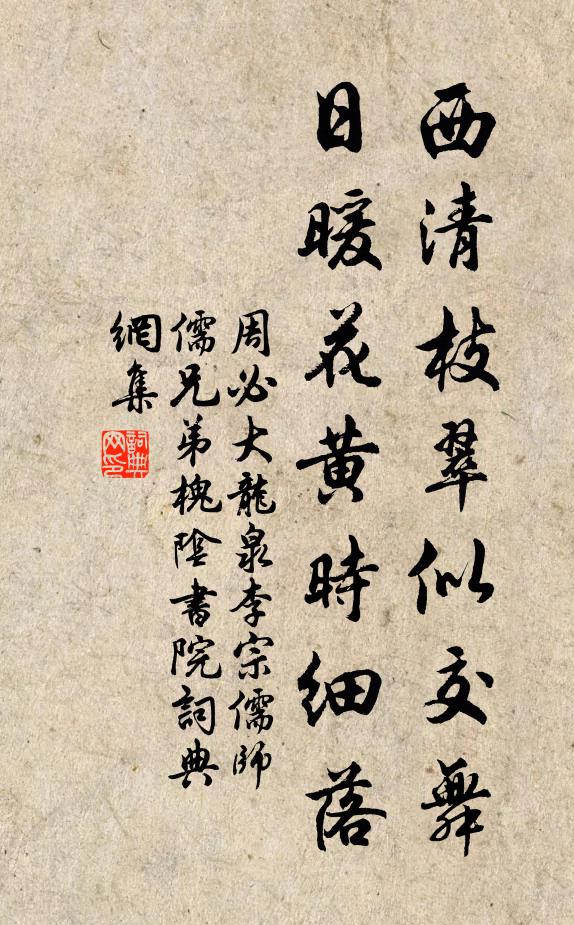 西清枝翠似交舞
日暖花黄時細落
周必大龍泉李宗儒師
儒兄弟槐陰書院詞典
網集
詞典網印